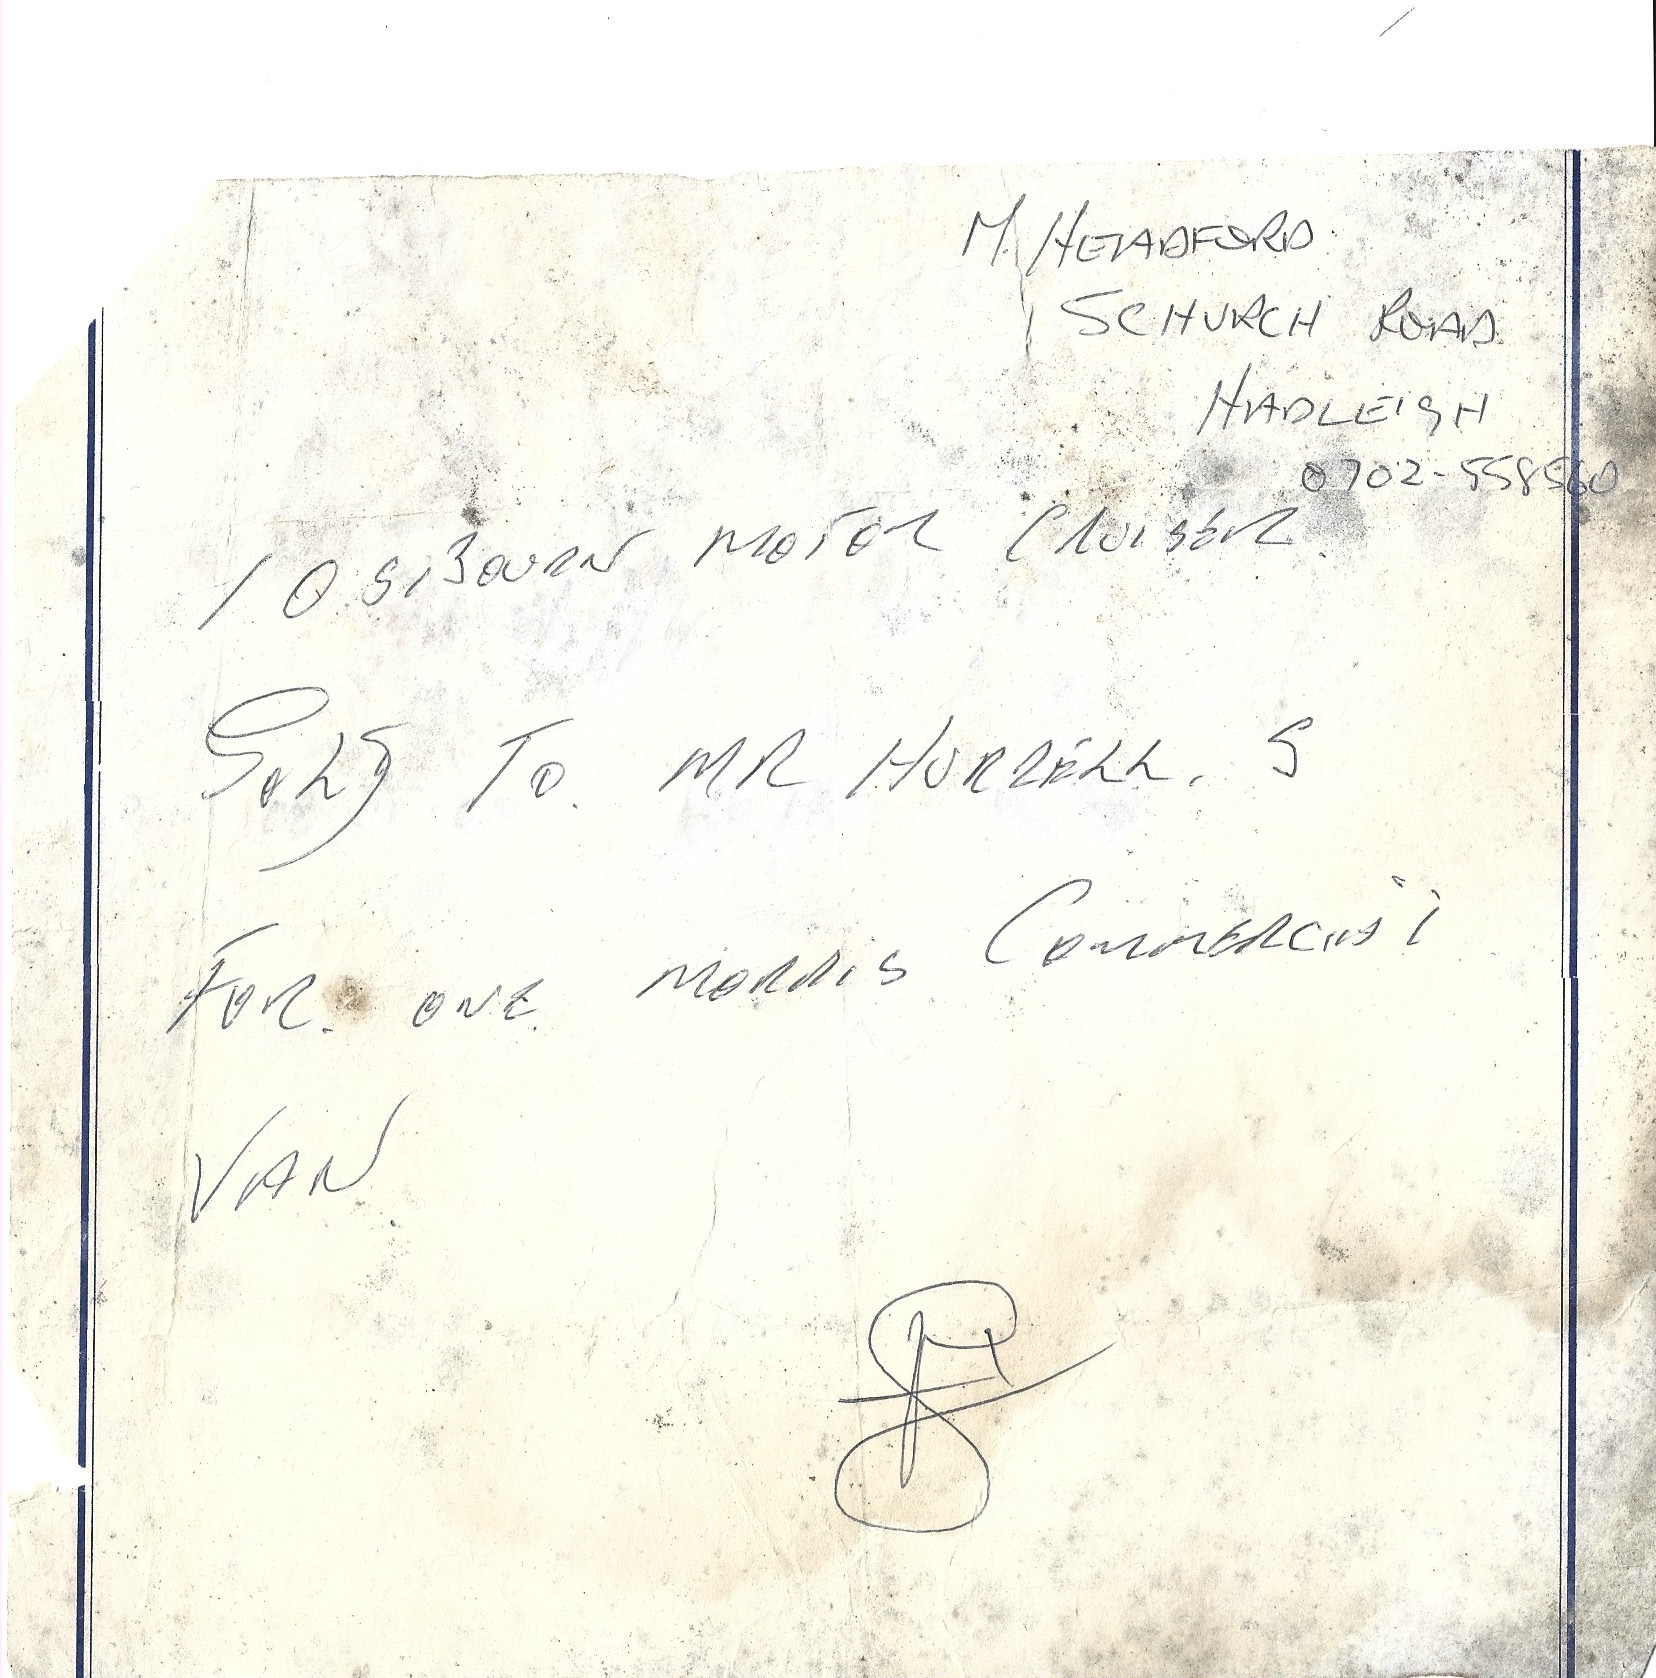 M. HEADFORD
5 CHURCH ROAD
HADLEIGH
0702-558560
1 OSIBOURN MOTOR CRUISER
SOLD TO. MR HURRELL. S
FOR. ONE. MORRIS COMMERCIAL
VAN